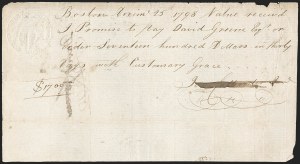 Boston Novemr 25 1798 Value received
I Promise to Pay David Greene Esqr or
Order Seventeen hundred Dollars in thirty
Days with Customary Grace
$1700